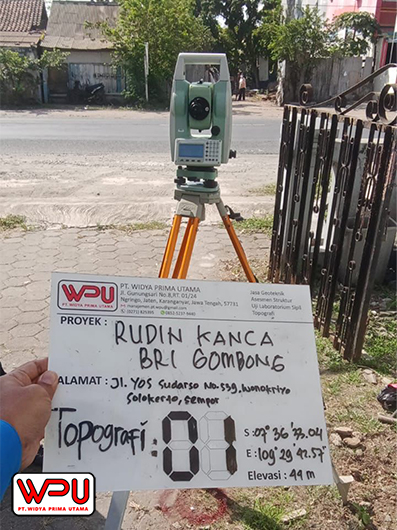 PT. WIDYA PRIMA UTAMA
WPU
PT. WIDYA PRIMA UTAMA
Jl. Gunungsari No.8,RT. 01/24
Ngringo, Jaten, Karanganyar, Jawa Tengah, 57731
Jasa Geoteknik
Asesmen Struktur
Uji Laboratorium Sipil
Topografi
PROYEK : RUDIN KANCA
BRI GOMBONG
ALAMAT : Jl. YOS Sudarso No.539, Wonokriyo
Solokerto, Sempor
Topografi : 01
S : 07° 36' 33.04
E : 109° 29' 42.57"
Elevasi : 44 m
WPU
PT. WIDYA PRIMA UTAMA